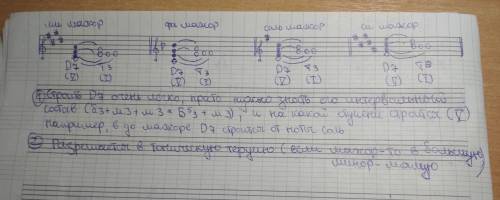 ми мажор фа мажор соль мажор си мажор
D7 T3 D7 T3 D7 T3 D7 T3
(V) (I) (V) (I) (V) (I) (V) (I)
1 Строить D7 очень легко, просто нужно знать его интервальный
состав (б3+м3+м3 = Б5/3+м3), и на какой ступени строится (V)
например, в до мажоре D7 строится от ноты соль
2 Разрешается в тоническую терцию (если мажор-то в большую,
минор-малую